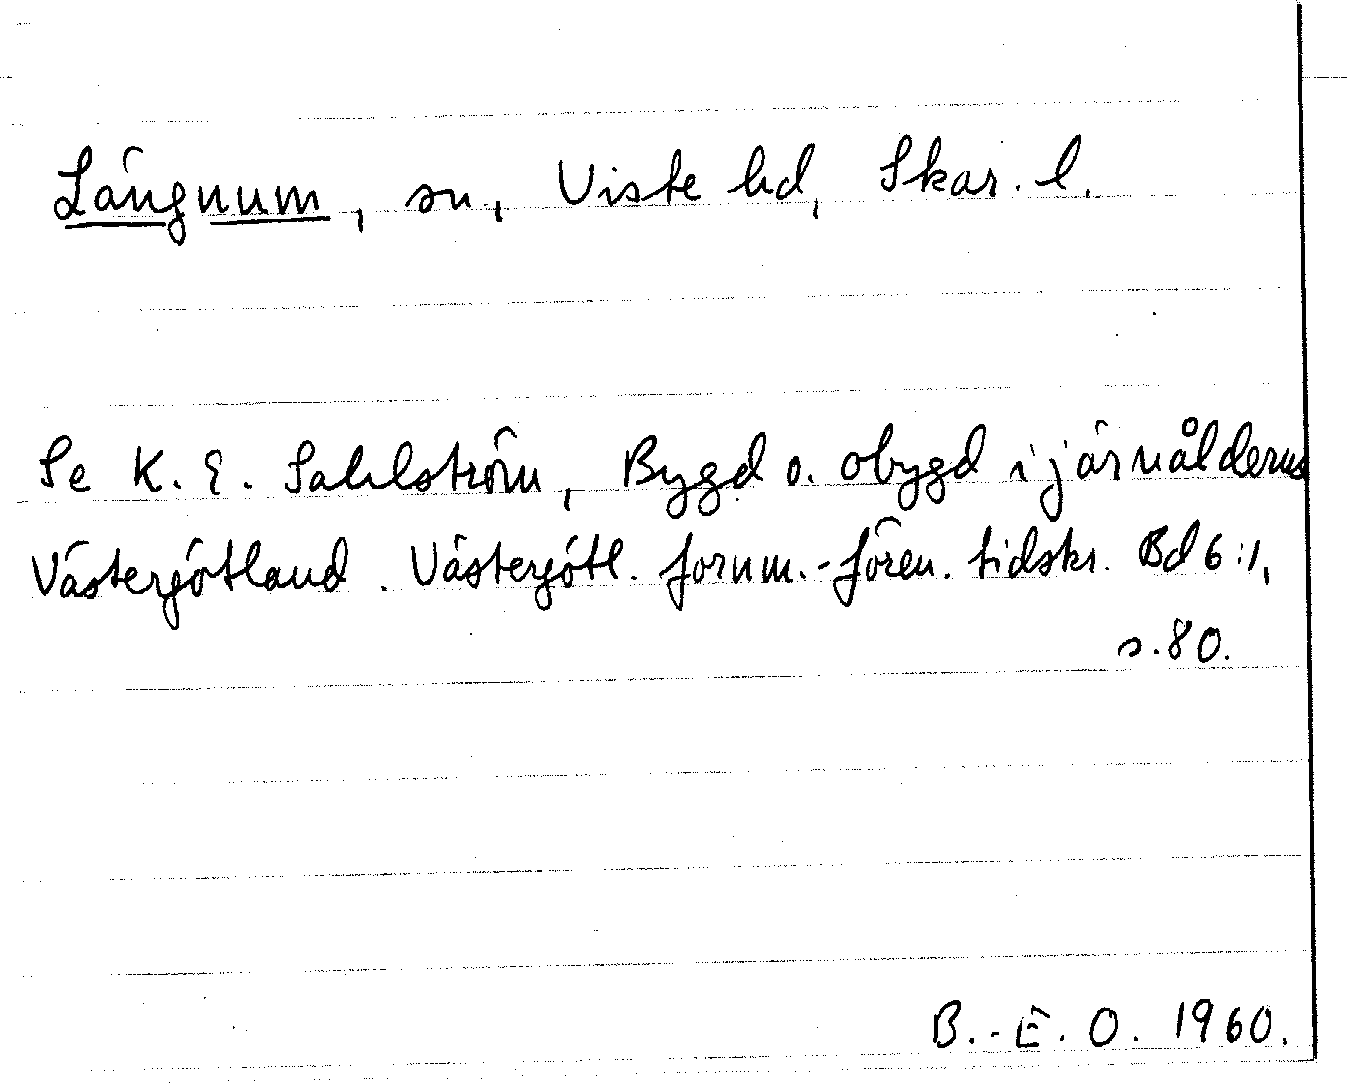 Längnum, sn, Viste hd, Skar. l.
Se K. E. Sahlström, Bygd o. obygd i järnålderns
Västergötland. Västergötl. fornm.-fören. tidskr. Bd 6:1,
s. 80.
B.-E. O. 1960.